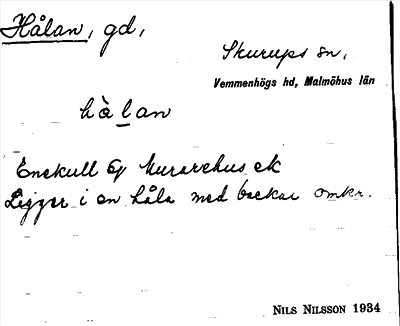 Hålan, gd,
Skurups sn,
Vemmenhögs hd, Malmöhus län
hålan
Enskull Murarehus ek
Ligger i en håla med backar omkr.
NILS NILSSON 1934